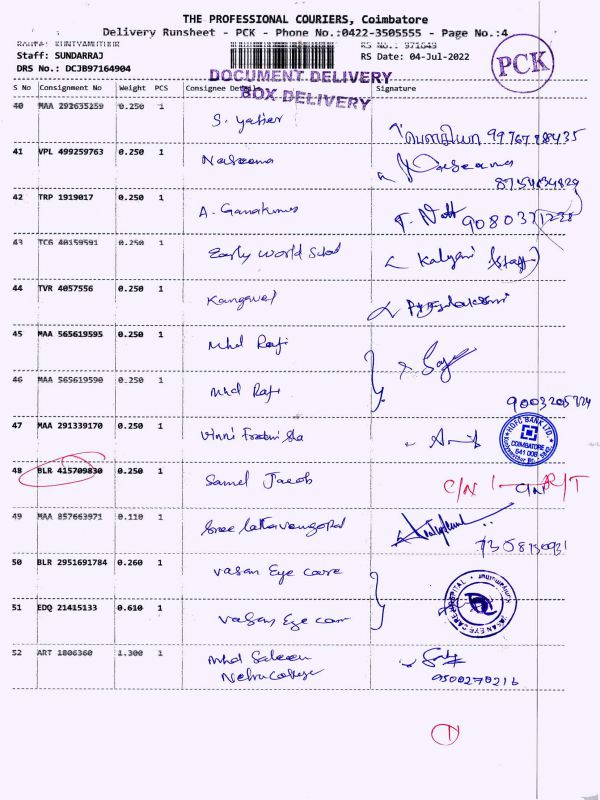 THE PROFESSIONAL COURIERS, Coimbatore
Delivery Runsheet - PCK - Phone No.:0422-3505555 - Page No.:4
Route: KUNIYAMUTHUR RS No.: 971649
Staff: SUNDARRAJ RS Date: 04-Jul-2022
DRS No.: DCJB97164904
PCK
DOCUMENT DELIVERY
BOX DELIVERY
S No Consignment No Weight PCS Consignee Details Signature
40 MAA 292635259 0.250 1 S. 
41 VPL 499259763 0.250 1 Nasreena
42 TRP 1919017 0.250 1 A. 
43 TCG 40159591 0.250 1 Early World School Kalyani (staff)
44 TVR 4057556 0.250 1
45 MAA 565619595 0.250 1 Mhd Rafi
46 MAA 565619590 0.250 1 Mhd Rafi
9003205724
47 MAA 291339170 0.250 1 Vinni
HDFC BANK LTD.
COIMBATORE
641 008
48 BLR 415709830 0.250 1 Samel Jacob C/N R/T
49 MAA 857663971 0.110 1 Sree
50 BLR 2951691784 0.260 1 Vasan Eye Care
51 EDQ 21415133 0.610 1 Vasan Eye Care
VASAN EYE CARE HOSPITAL
52 ART 1806360 1.300 1 Mhd Saleem
Nehru College 9500270216
1